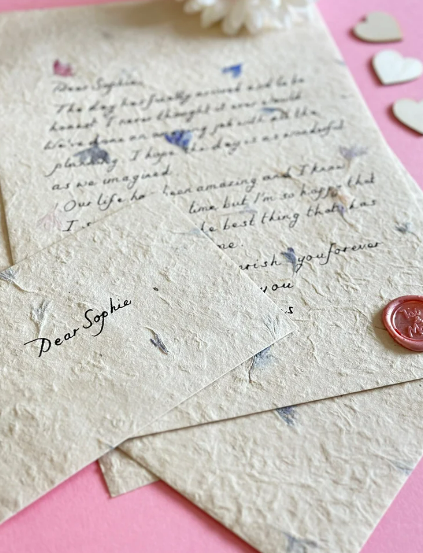 Dear Sophie,
The day has finally arrived and to be
honest I never thought it ever would
We've done an amazing job with all the
planning I hope the day is as wonderful
as we imagined
Our life has been amazing and I know
time but I'm so happy that
I
e best thing that has
me.
rish you forever
you
s
Dear Sophie